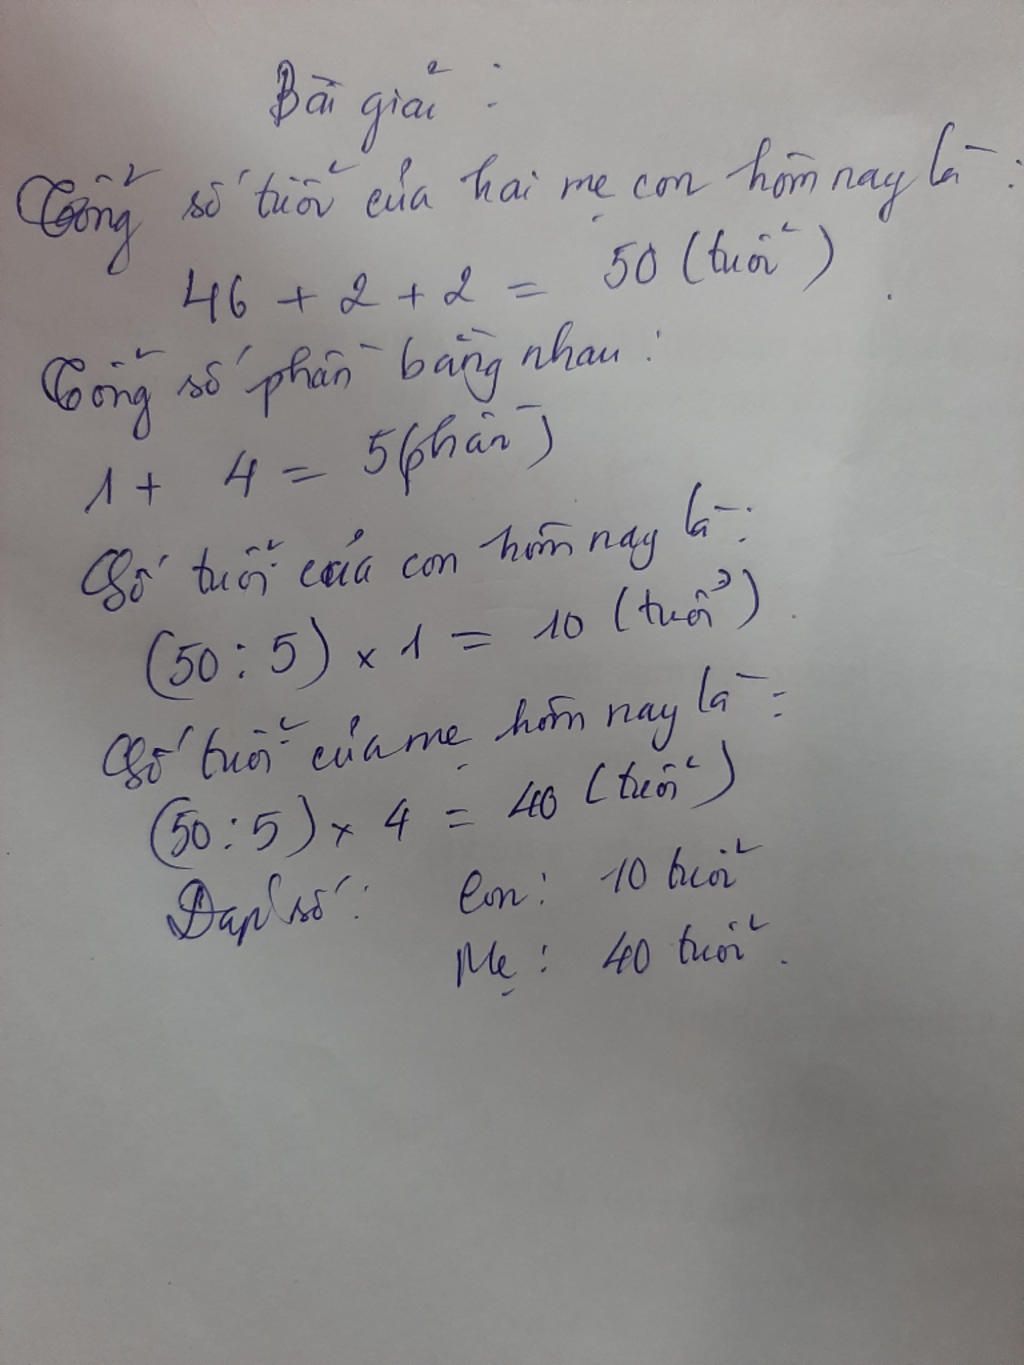 Bài giải :
Tổng số tuổi của hai mẹ con hôm nay là :
46 + 2 + 2 = 50 (tuổi)
Tổng số phần bằng nhau :
1 + 4 = 5 (phần)
Số tuổi của con hôm nay là :
(50 : 5) x 1 = 10 (tuổi)
Số tuổi của mẹ hôm nay là :
(50 : 5) x 4 = 40 (tuổi)
Đáp số : Con : 10 tuổi
Mẹ : 40 tuổi .